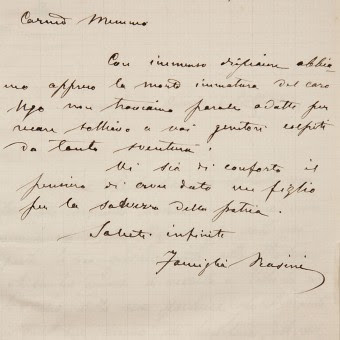 Carmo Memmo
Con immenso dispiacere abbia-
mo appreso la morte immatura del caro
Ugo non troviamo parole adatte per
recare sollievo a voi genitori colpiti
da tanta sventura.
Vi sia di conforto il
pensiero di aver dato un figlio
per la salvezza della patria.
Saluti infiniti
Famiglia Nasini